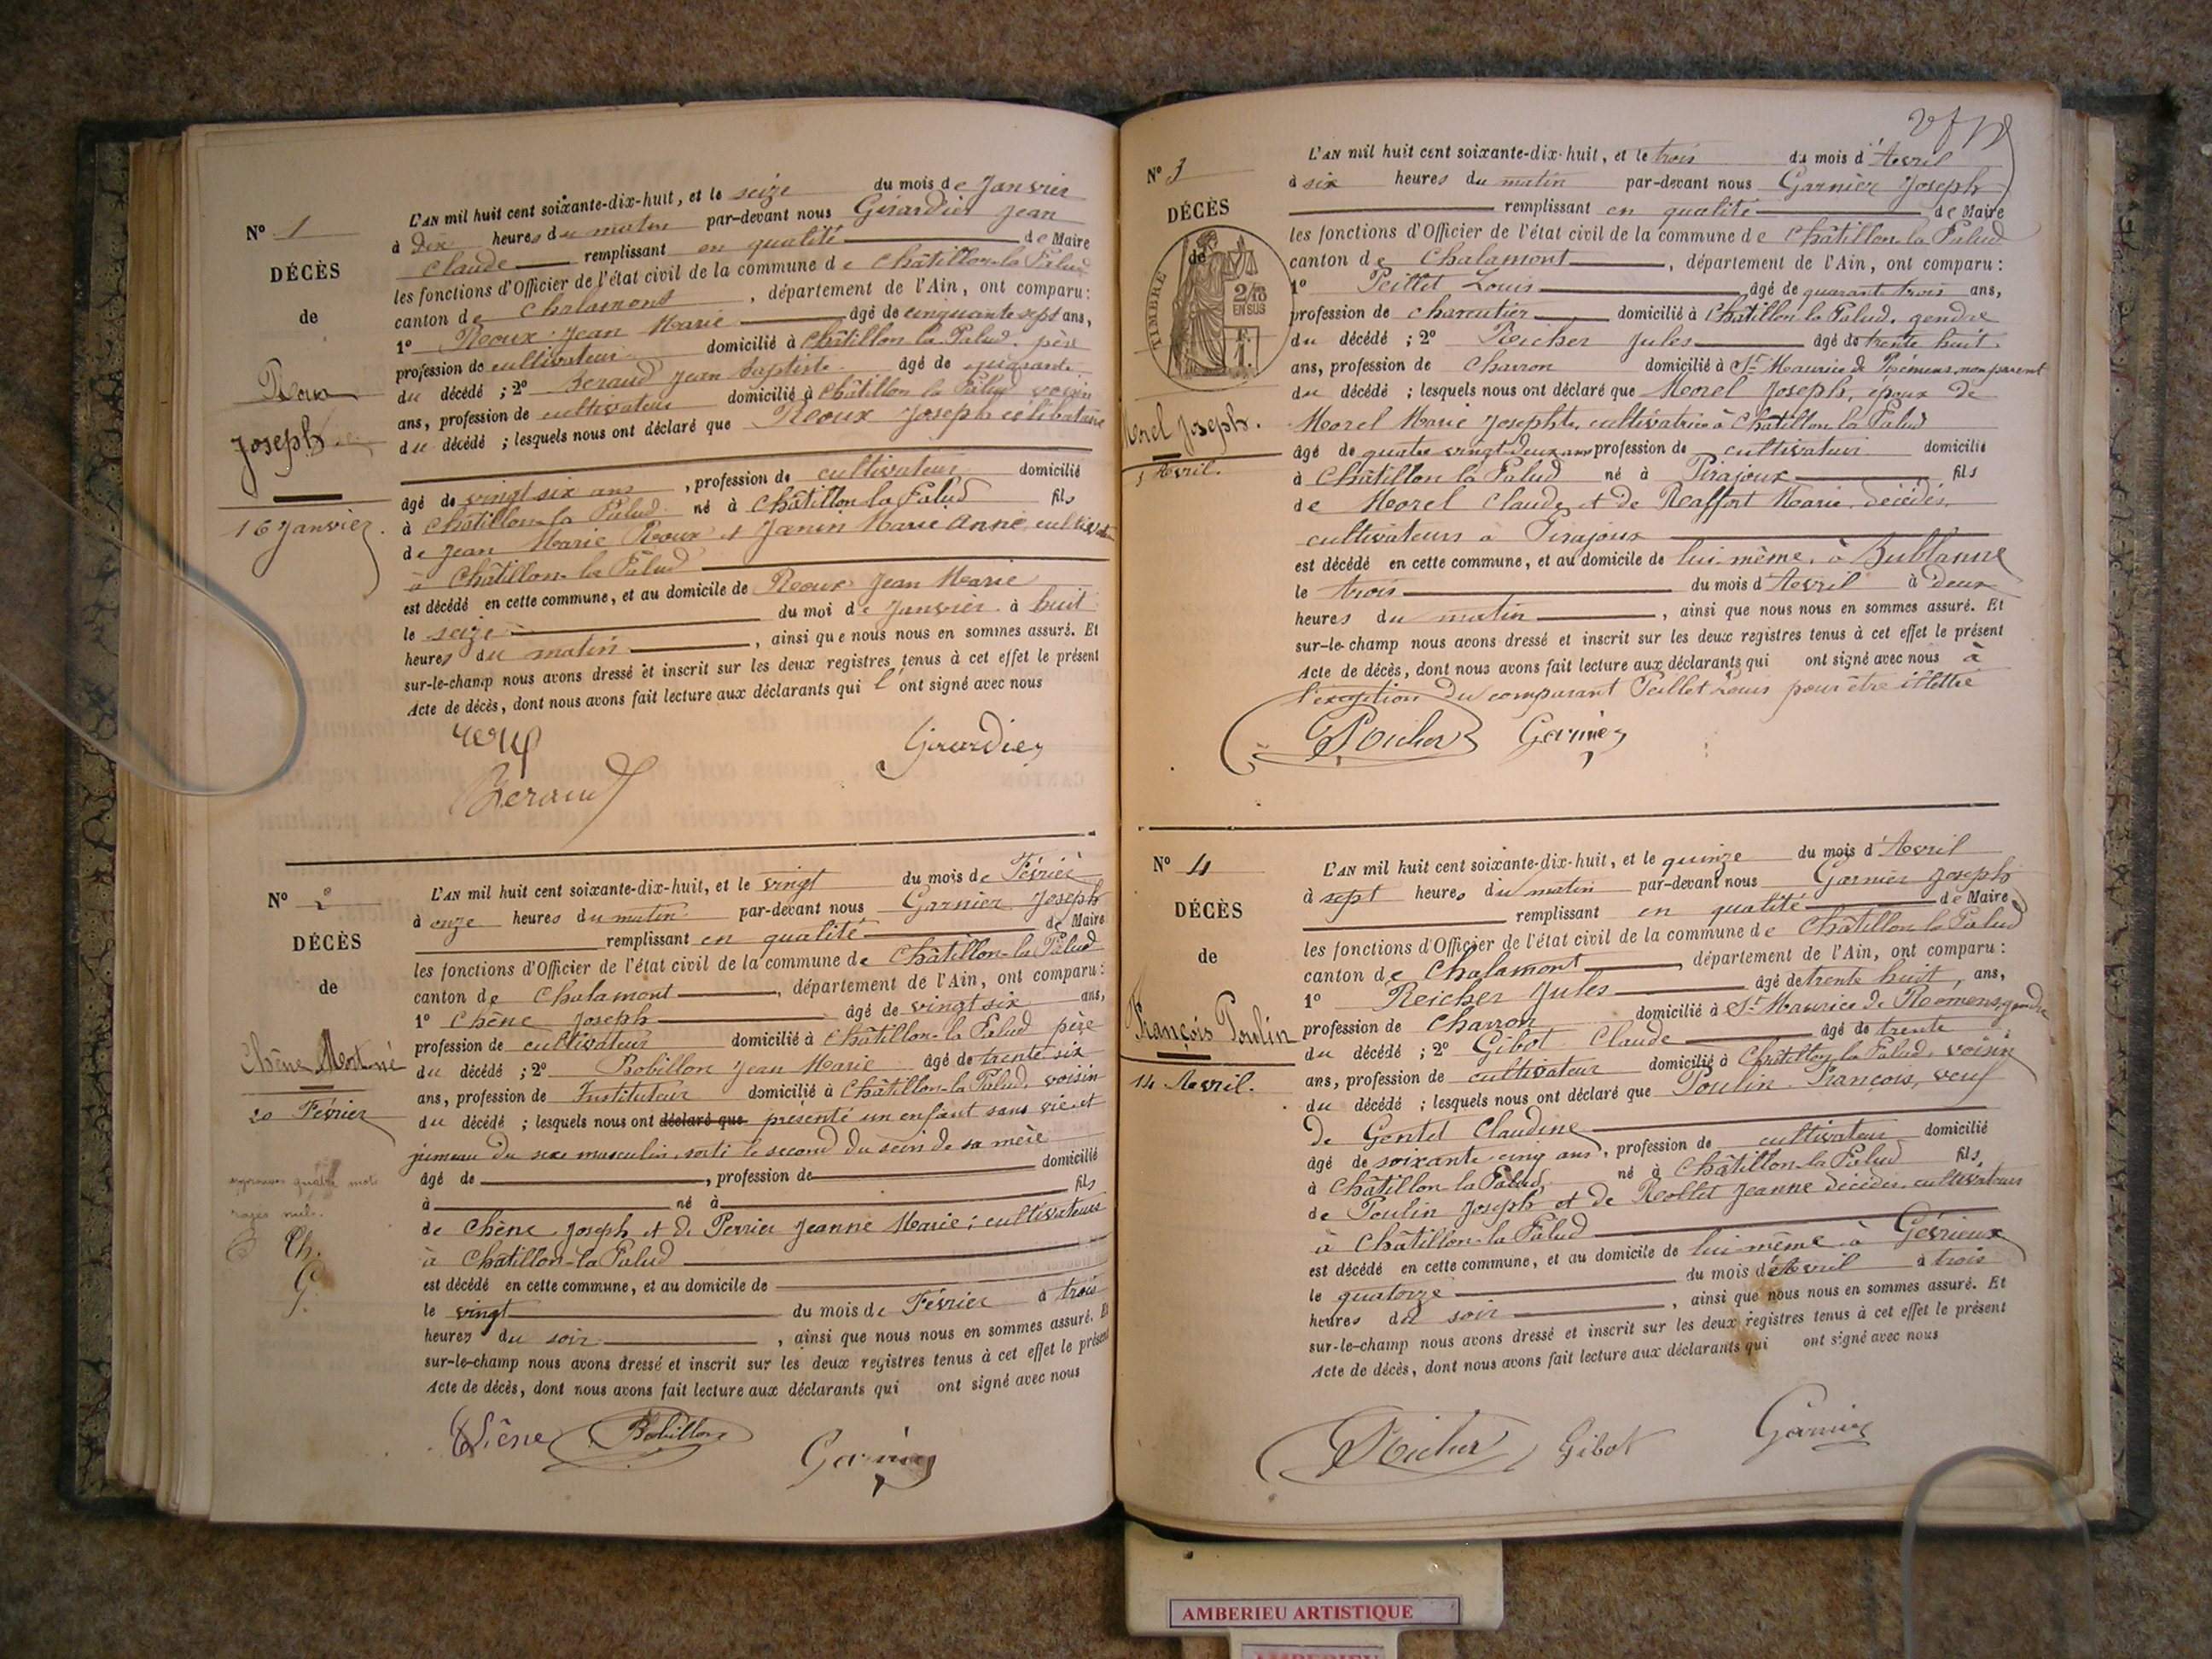 Nº 1
DÉCÈS
de
Roux
Joseph.
16 Janvier.
L'AN mil huit cent soixante-dix-huit, et le seize du mois de Janvier
à dix heures du matin par-devant nous Girardier Jean
Claude remplissant en qualité de Maire
les fonctions d'Officier de l'état civil de la commune de Châtillon-la Palud
canton de Chalamont, département de l'Ain, ont comparu:
1º Roux Jean Marie âgé de cinquante sept ans,
profession de cultivateur domicilié à Châtillon la Palud. père
du décédé; 2º Beraud Jean Baptiste âgé de quarante
ans, profession de cultivateur domicilié à Châtillon la Palud voisin
du décédé; lesquels nous ont déclaré que Roux Joseph célibataire
âgé de vingt six ans, profession de cultivateur domicilié
à Châtillon-la Palud né à Châtillon-la Palud fils
de Jean Marie Roux et Janin Marie Anne,
à Châtillon-la Palud
est décédé en cette commune, et au domicile de Roux Jean Marie
le seize du moi de Janvier à huit
heures du matin, ainsi que nous nous en sommes assuré. Et
sur-le-champ nous avons dressé et inscrit sur les deux registres tenus à cet effet le présent
Acte de décès, dont nous avons fait lecture aux déclarants qui l'ont signé avec nous
Girardier
Beraud
Nº 2
DÉCÈS
de
Chêne Mort-né
20 Février
quatre mots
nuls.
Ch.
G.
L'AN mil huit cent soixante-dix-huit, et le vingt du mois de Février
à onze heures du matin par-devant nous Garnier Joseph
remplissant en qualité de Maire
les fonctions d'Officier de l'état civil de la commune de Châtillon-la Palud
canton de Chalamont, département de l'Ain, ont comparu:
1º Chêne Joseph âgé de vingt six ans,
profession de cultivateur domicilié à Châtillon-la Palud père
du décédé; 2º Bobillon Jean Marie âgé de trente six
ans, profession de Instituteur domicilié à Châtillon-la Palud, voisin
du décédé; lesquels nous ont déclaré que présenté un enfant sans vie et
jumeau du sexe masculin, sorti le second du sein de sa mère
âgé de, profession de domicilié
à né à fils
de Chêne Joseph et de Perrier Jeanne Marie; cultivateurs
à Châtillon-la Palud
est décédé en cette commune, et au domicile de
le vingt du mois de Février à trois
heures du soir, ainsi que nous nous en sommes assuré. Et
sur-le-champ nous avons dressé et inscrit sur les deux registres tenus à cet effet le présent
Acte de décès, dont nous avons fait lecture aux déclarants qui ont signé avec nous
Chêne Bobillon Garnier
Nº 3
DÉCÈS
de
TIMBRE
2/10
EN SUS
Morel Joseph.
3 Avril.
L'AN mil huit cent soixante-dix-huit, et le trois du mois d'Avril
à six heures du matin par-devant nous Garnier Joseph
remplissant en qualité de Maire
les fonctions d'Officier de l'état civil de la commune de Châtillon-la Palud
canton de Chalamont, département de l'Ain, ont comparu:
1º Peillet Louis âgé de quarante trois ans,
profession de charcutier domicilié à Châtillon la Palud, gendre
du décédé; 2º Reicher Jules âgé de trente huit
ans, profession de Charron domicilié à St Maurice de Rémens, non parent
du décédé; lesquels nous ont déclaré que Morel Joseph, époux de
Morel Marie Josephte, cultivatrice à Châtillon la Palud
âgé de quatre vingt deux ans profession de cultivateur domicilié
à Châtillon la Palud né à Pirajoux fils
de Morel Claude et de Raffort Marie décédés,
cultivateurs à Pirajoux
est décédé en cette commune, et au domicile de lui-même, à Bublanne
le trois du mois d'Avril à deux
heures du matin, ainsi que nous nous en sommes assuré. Et
sur-le-champ nous avons dressé et inscrit sur les deux registres tenus à cet effet le présent
Acte de décès, dont nous avons fait lecture aux déclarants qui ont signé avec nous à
l'exception du comparant Peillet Louis pour être illettré
Reicher Garnier
Nº 4
DÉCÈS
de
François Poulin
14 Avril.
L'AN mil huit cent soixante-dix-huit, et le quinze du mois d'Avril
à sept heures du matin par-devant nous Garnier Joseph
remplissant en qualité de Maire
les fonctions d'Officier de l'état civil de la commune de Châtillon la Palud
canton de Chalamont, département de l'Ain, ont comparu:
1º Reicher Jules âgé de trente huit, ans,
profession de Charron domicilié à St Maurice de Remens, gendre
du décédé; 2º Gibot Claude âgé de trente
ans, profession de cultivateur domicilié à Châtillon la Palud, voisin
du décédé; lesquels nous ont déclaré que Poulin François, veuf
de Gentet Claudine
âgé de soixante cinq ans, profession de cultivateur domicilié
à Châtillon la Palud né à Châtillon-la Palud fils
de Poulin Joseph et de Rollet Jeanne décédés, cultivateurs
à Châtillon-la Palud
est décédé en cette commune, et au domicile de lui-même à Gévrieux
le quatorze du mois d'Avril à trois
heures du soir, ainsi que nous nous en sommes assuré. Et
sur-le-champ nous avons dressé et inscrit sur les deux registres tenus à cet effet le présent
Acte de décès, dont nous avons fait lecture aux déclarants qui ont signé avec nous
Reicher Gibot Garnier
AMBERIEU ARTISTIQUE
AMBERIEU